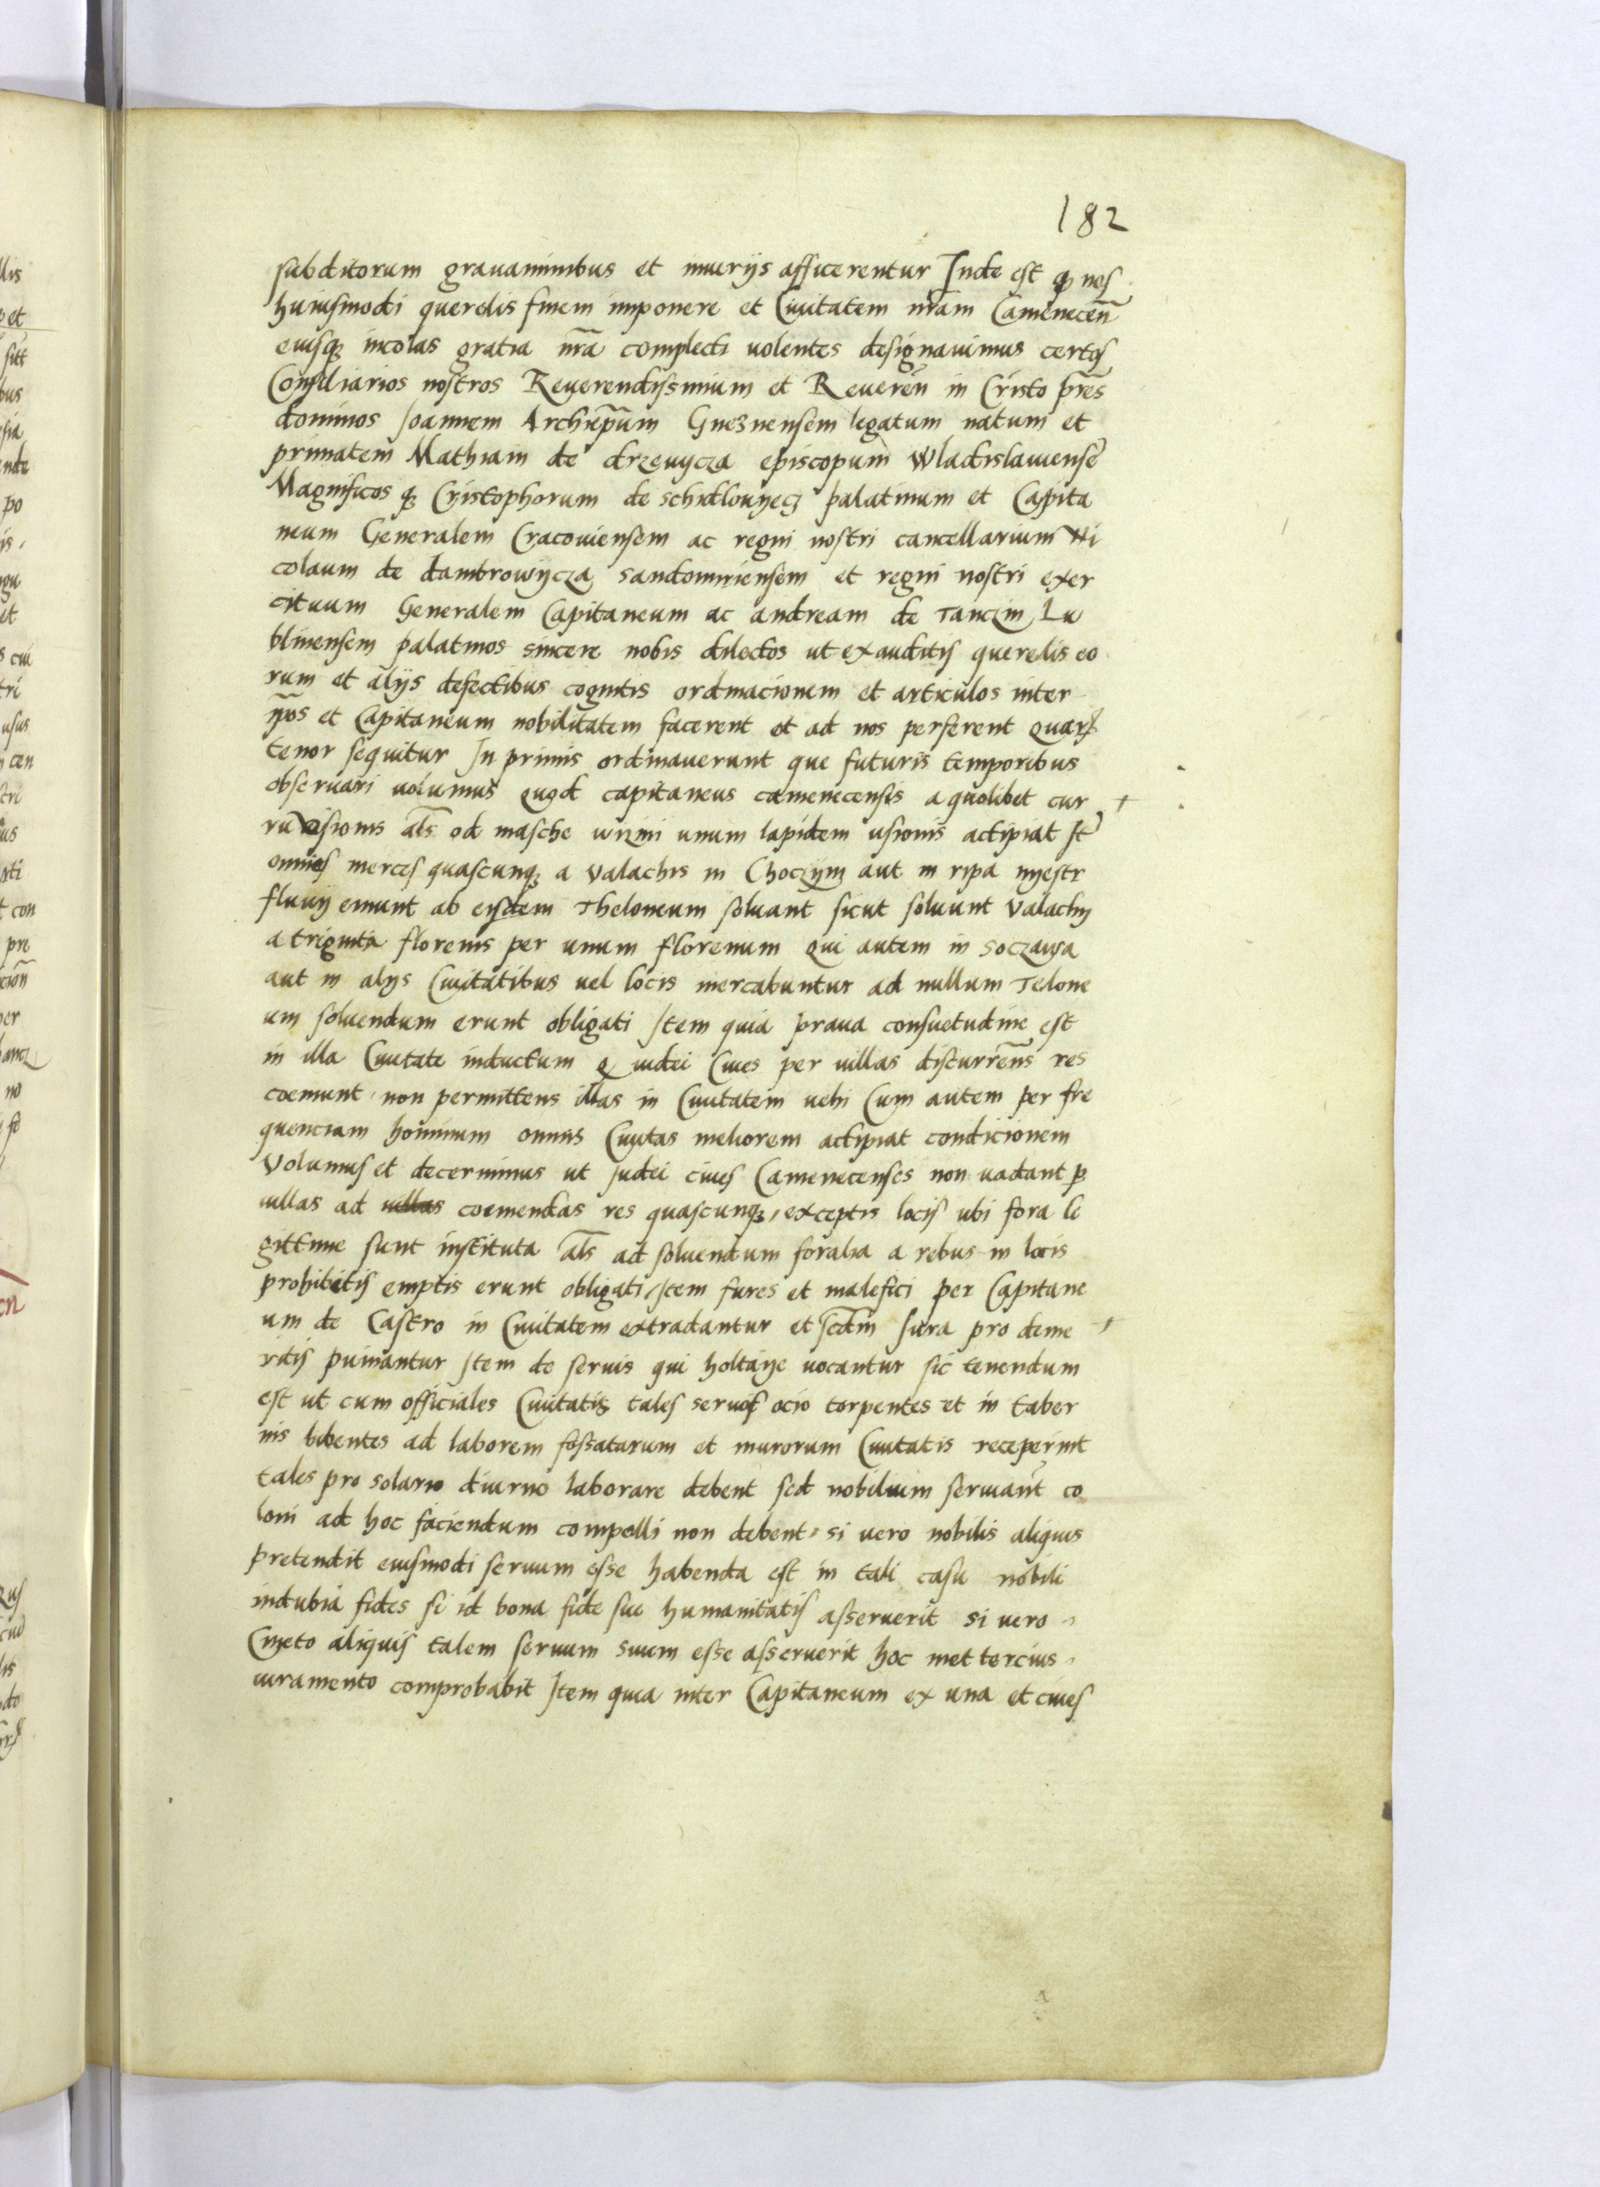 182
subditorum grauaminibus et iniurijs afficerentur Inde est q nos
huiusmodi querelis finem imponere et Ciuitatem nram Camenecen
eiusq incolas gratia nra complecti uolentes designauimus certos
Consiliarios nostros Reuerendissimum et Reueren in Cristo pres
dominos Joannem Archiepum Gnesnensem legatum natum et
primatem Mathiam de drzewycza episcopum Wladislauiense
Magnificos q Cristophorum de schidlowyecz palatinum et Capita
neum Generalem Cracouiensem ac regni nostri cancellarium Ni
colaum de dambrowycza sandomiriensem et regni nostri exer
cituum Generalem Capitaneum ac andream de Tanczin Lu
blinensem palatinos sincere nobis dilectos ut exauditis querelis eo
rum et alijs defectibus cognitis ordinacionem et articulos inter
ipos et Capitaneum nobilitatem facerent et ad nos perferent quar
tenor sequitur In primis ordinauerunt que futuris temporibus
obseruari uolumus quod capitaneus camenecensis a quolibet cur
ru usionis als od masche wizini unum lapidem usionis accipiat It
omnes merces quascunq a Valachis in Choczym aut in ripa nyestr
fluuij emunt ab eisdem Theloneum soluant sicut soluunt Valachij
a triginta florenis per unum florenum qui autem in soczawa
aut in alijs Ciuitatibus uel locis mercabuntur ad nullum Telone
um soluendum erunt obligati Item quia praua consuetudine est
in illa Ciuitate inductum q iudei Ciues per uillas discurrens res
coemunt non permittens illas in Ciuitatem uehi Cum autem per fre
quenciam hominum omnis Ciuitas meliorem accipiat condicionem
Volumus et decernimus ut Judei ciues Camenecenses non uadant p
uillas ad uillas coemendas res quascunq exceptis locis ubi fora le
gittime sunt instituta als ad soluendum foralia a rebus in locis
prohibitis emptis erunt obligati Item fures et malefici per Capitane
um de Castro in Ciuitatem extradantur et scdm Jura pro deme
ritis puniantur Item de seruis qui holtaye uocantur sic tenendum
est ut cum officiales Ciuitatis tales seruos ocio torpentes et in taber
nis bibentes ad laborem fossatarum et murorum Ciuitatis receperint
tales pro solario diurno laborare debent sed nobilium seruiant co
loni ad hoc faciendum compelli non debent si uero nobilis aliquis
pretendit eiusmodi seruum esse habenda est in tali casu nobili
indubia fides si id bona fide sue humanitatis asseruerit si uero
Cmeto aliquis talem seruum suum esse asseruerit hoc mettercius
iuramento comprobabit Item quia inter Capitaneum ex una et ciues